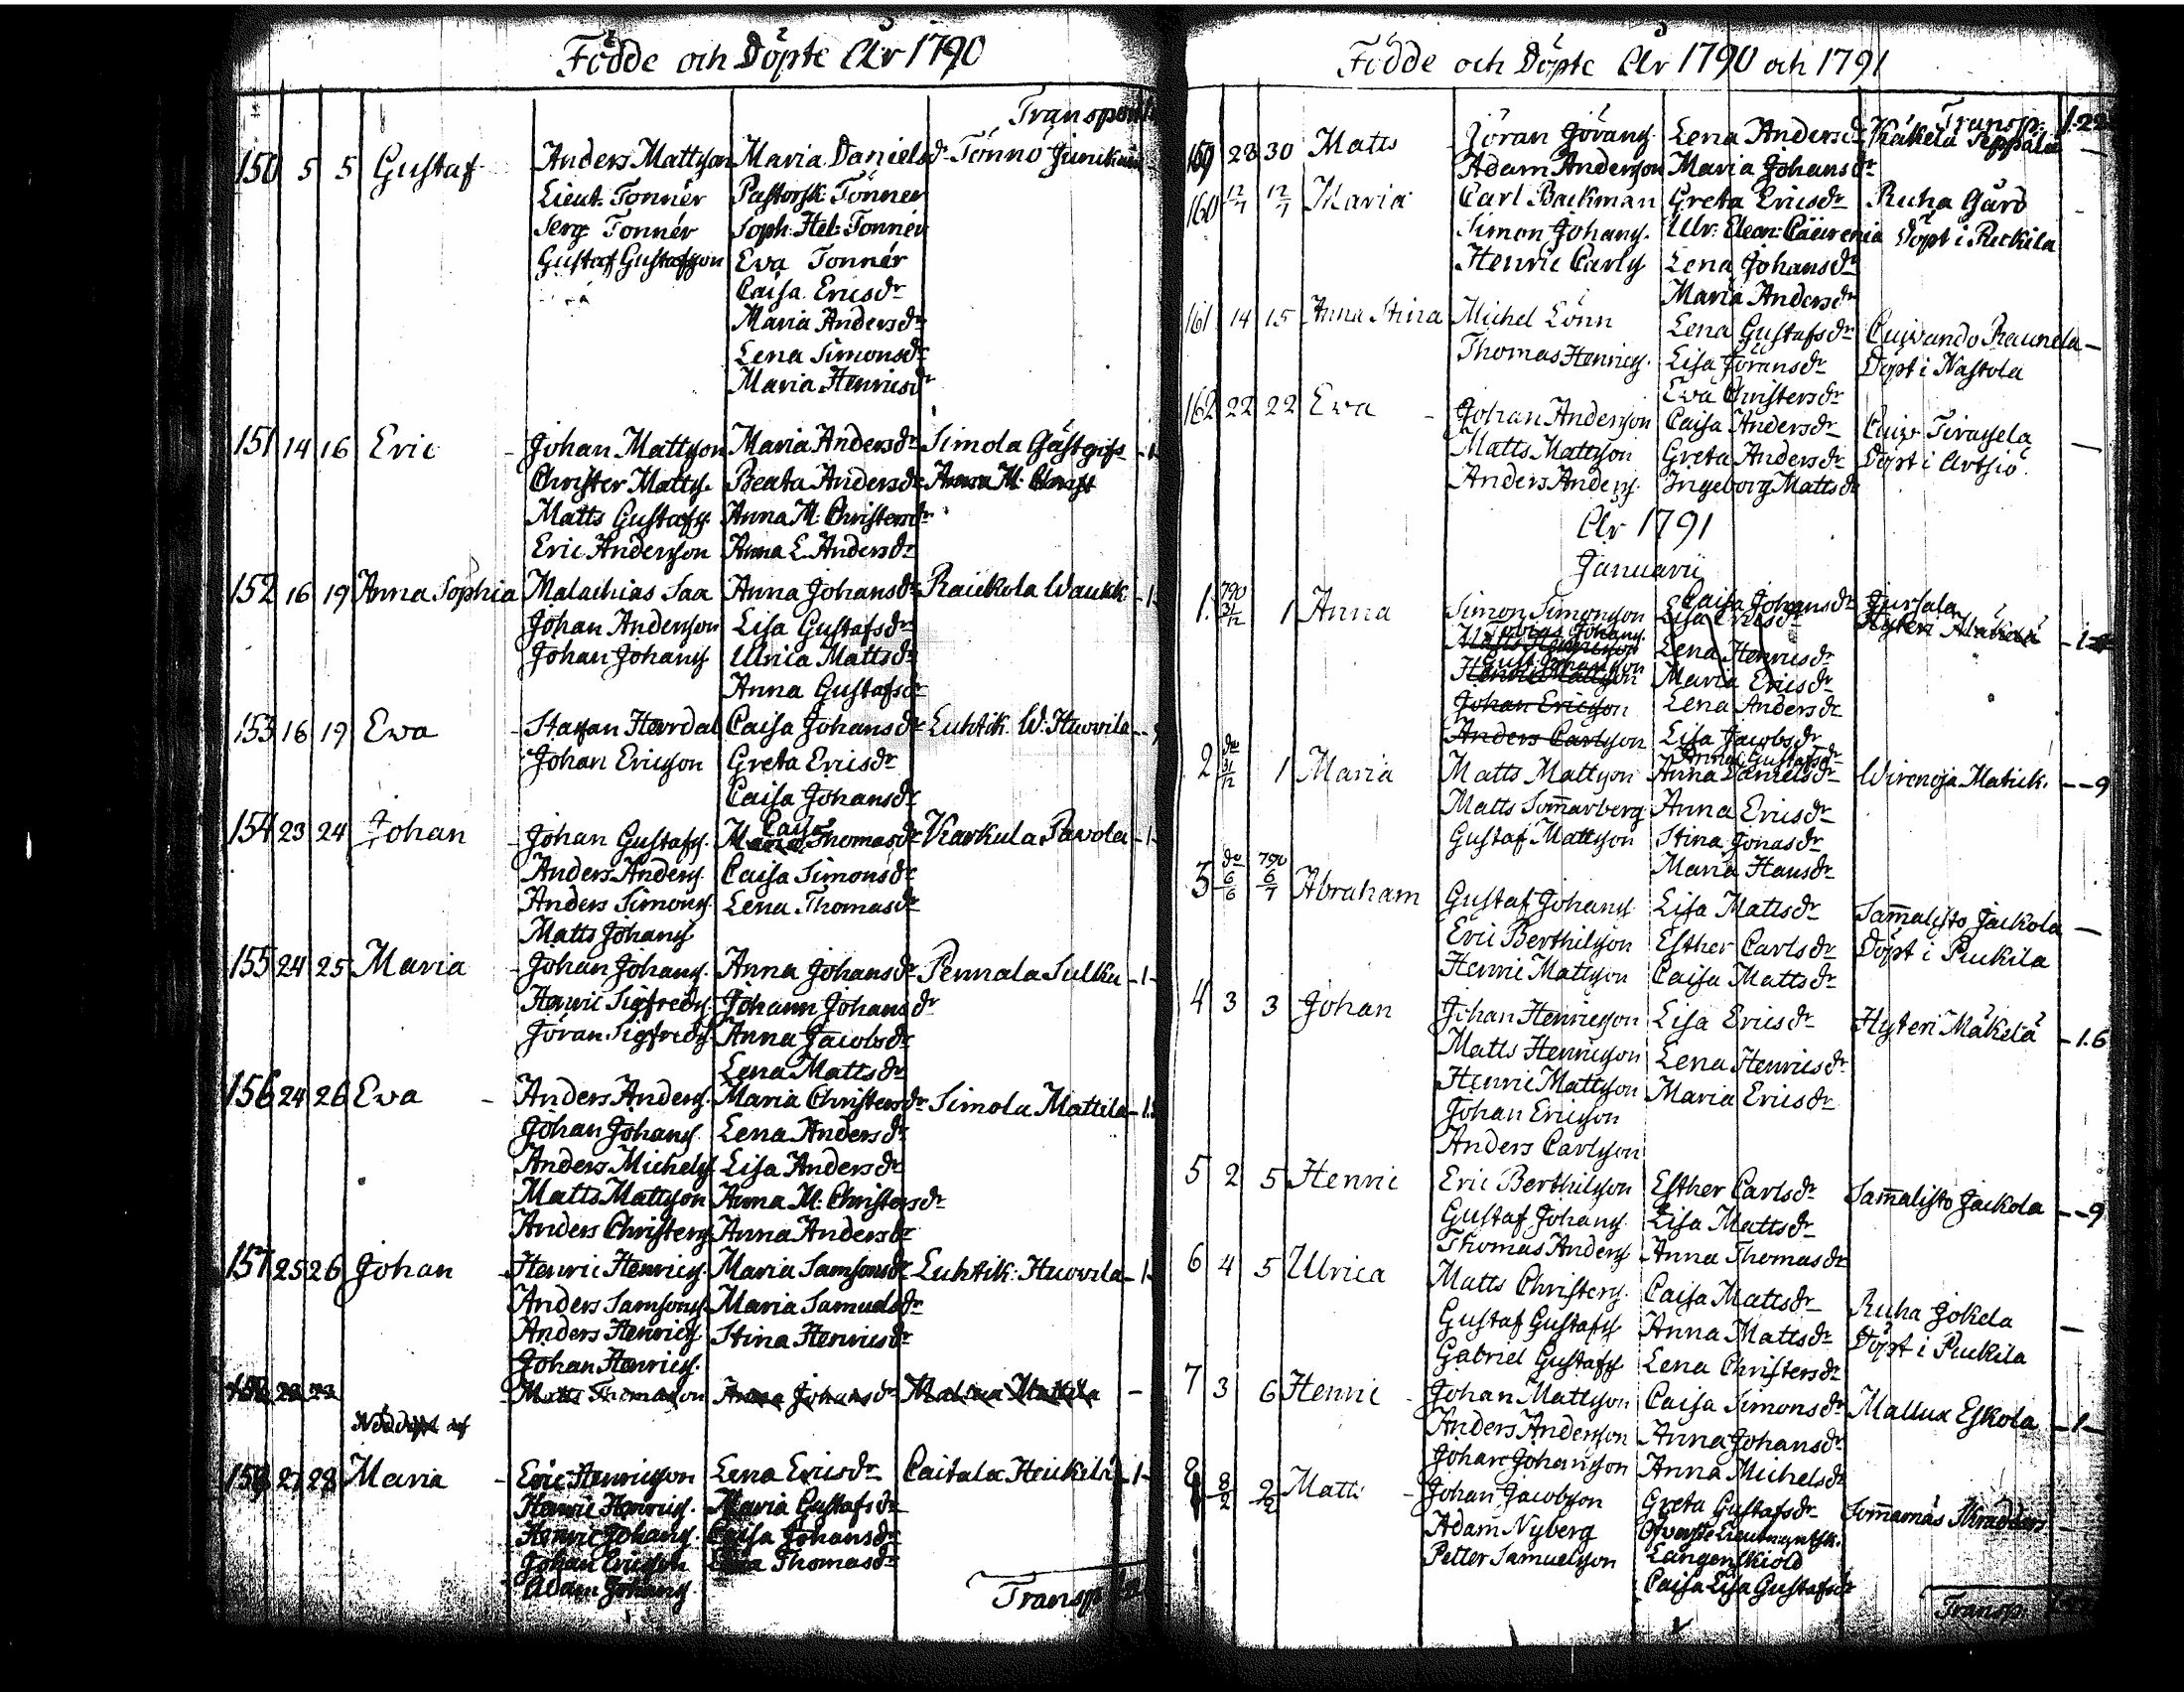 Födde och Döpte År 1790
Transport
150 5 5 Gustaf Anders Mattsson Maria Danielsdr Tönnö Junikais
Lieut. Tonnér Pastorsk. Tonner
Serg Tonnér Soph. Hel. Tonnér
Gustaf Gustafsson Eva Tonnér
Caisa Ericsdr
Maria Andersdr
Lena Simonsdr
Maria Henricsdr
151 14 16 Eric - Johan Mattsson Maria Andersdr Simola Gästgifv -1-
Christer Mattss. Beata Andersdr
Matts Gustafss. Anna M. Christersdr
Eric Andersson Anna L. Andersdr
152 16 19 Anna Sophia Malachias Saa Anna Johansdr Raickola Waukk -1-
Johan Andersson Lisa Gustafsdr
Johan Johanss Ulrica Mattsdr
Anna Gustafsdr
153 16 19 Ewa - Staffan Heordal Caisa Johansdr Luhtik. W. Huovila - - 9
Johan Ericsson Greta Ericsdr
Caisa Johansdr
154 23 24 Johan - Johan Gustafss. Caisa Thomasdr Karkula Pavola -1-
Anders Anderss. Caisa Simonsdr
Anders Simonss. Lena Thomasdr
Matts Johanss
155 24 25 Maria - Johan Johanss. Anna Johansdr Pennala Sulku -1-
Henric Sigfredss. Johann Johansdr
Jöran Sigfredss Anna Jacobsdr
Lena Mattsdr
156 24 26 Eva - Anders Anderss. Maria Christersdr Simola Mattila -1.
Johan Johanss. Lena Andersdr
Anders Michelss Lisa Andersdr
Matts Mattsson Anna M. Christersdr
Anders Christerss Anna Andersdr
157 25 26 Johan - Henric Henricss. Maria Samsonsdr Luhtik. Huovila -1-
Anders Samsonss. Maria Samuelsdr
Anders Henricss Stina Henricsdr
Johan Henricss.
Matts Thomasson Anna Johansdr Mattila -
Nöddöpt af
158 27 28 Maria - Eric Henricsson Lena Ericsdr Caitala Heickilä -1-
Henric Henricss. Maria Gustafsdr
Henric Johanss. Caisa Johansdr
Johan Ericsson Thomasdr
Adam Johanss.
Transp
Födde och Döpte År 1790 och 1791
Transp. 1.22
159 28 30 Matts Jöran Jöranss. Lena Andersdr Käkelä Seppälä -
Adam Andersson Maria Johansdr
160 12/7 12/7 Maria Carl Backman Greta Ericsdr Ruha Gård -
Simon Johanss. Ulr: Eleon: Döpt i Puckila
Henric Carlss Lena Johansdr
Maria Andersdr
161 14 15 Anna Stina Michel Lönn Lena Gustafsdr Cuivando Raunela -
Thomas Henricss. Lisa Jöransdr Döpt i Nastola
Eva Christersdr
162 22 22 Ewa - Johan Andersson Caisa Andersdr Cuiv. -
Matts Mattsson Greta Andersdr Döpt i Artsiö.
Anders Anderss. Ingeborg Mattsdr
År 1791
Januarii
1. 790 31/12 1 Anna Simon Simonsson Caisa Johansdr Jursala
Tobias Johanss. Lisa Ericsdr Hyteri Mäkelä -1
Matts Henricsson Lena Henricsdr
Gust. Johansson Maria Ericsdr
Henric Mattsson
Johan Ericsson Lena Andersdr
Anders Carlsson Lisa Jacobsdr
Anna Gustafsdr
2 do 31/12 1 Maria Matts Mattsson Anna Danielsdr Wirenoja Matick. - - 9
Matts Som̄arberg Anna Ericsdr
Gustaf Mattsson Stina Jonasdr
Maria Hansdr
3 do 6/6 790 6/7 Abraham Gustaf Johanss Lisa Mattsdr Sam̄alisto Jackola -
Eric Berthilsson Esther Carlsdr Döpt i Puckila
Henric Mattsson Caisa Mattsdr
4 3 3 Johan Johan Henricsson Lisa Ericsdr Hyteri Mäkelä -1.6
Matts Henricsson Lena Henricsdr
Henric Mattsson Maria Ericsdr
Johan Ericsson
Anders Carlsson
5 2 5 Henric Eric Berthilsson Esther Carlsdr Sam̄alisto Jackola - - 9
Gustaf Johanss. Lisa Mattsdr
Thomas Anderss Anna Thomasdr
6 4 5 Ulrica Matts Christerss. Caisa Mattsdr Ruha Jokela -
Gustaf Gustafss Anna Mattsdr Döpt i Puckila
Gabriel Gustafss Lena Christersdr
7 3 6 Henric - Johan Mattsson Caisa Simonsdr Mallux Eskola -1-
Anders Andersson Anna Johansdr
Johan Johansson Anna Michelsdr
8 8/2 2/2 Matts - Johan Jacobsson Greta Gustafsdr Som̄arnäs Skräddars -
Adam Nyberg Öfverste Lieutnantsk.
Petter Samuelsson Langenskiold
Caisa Lisa Gustafsdr
Transp